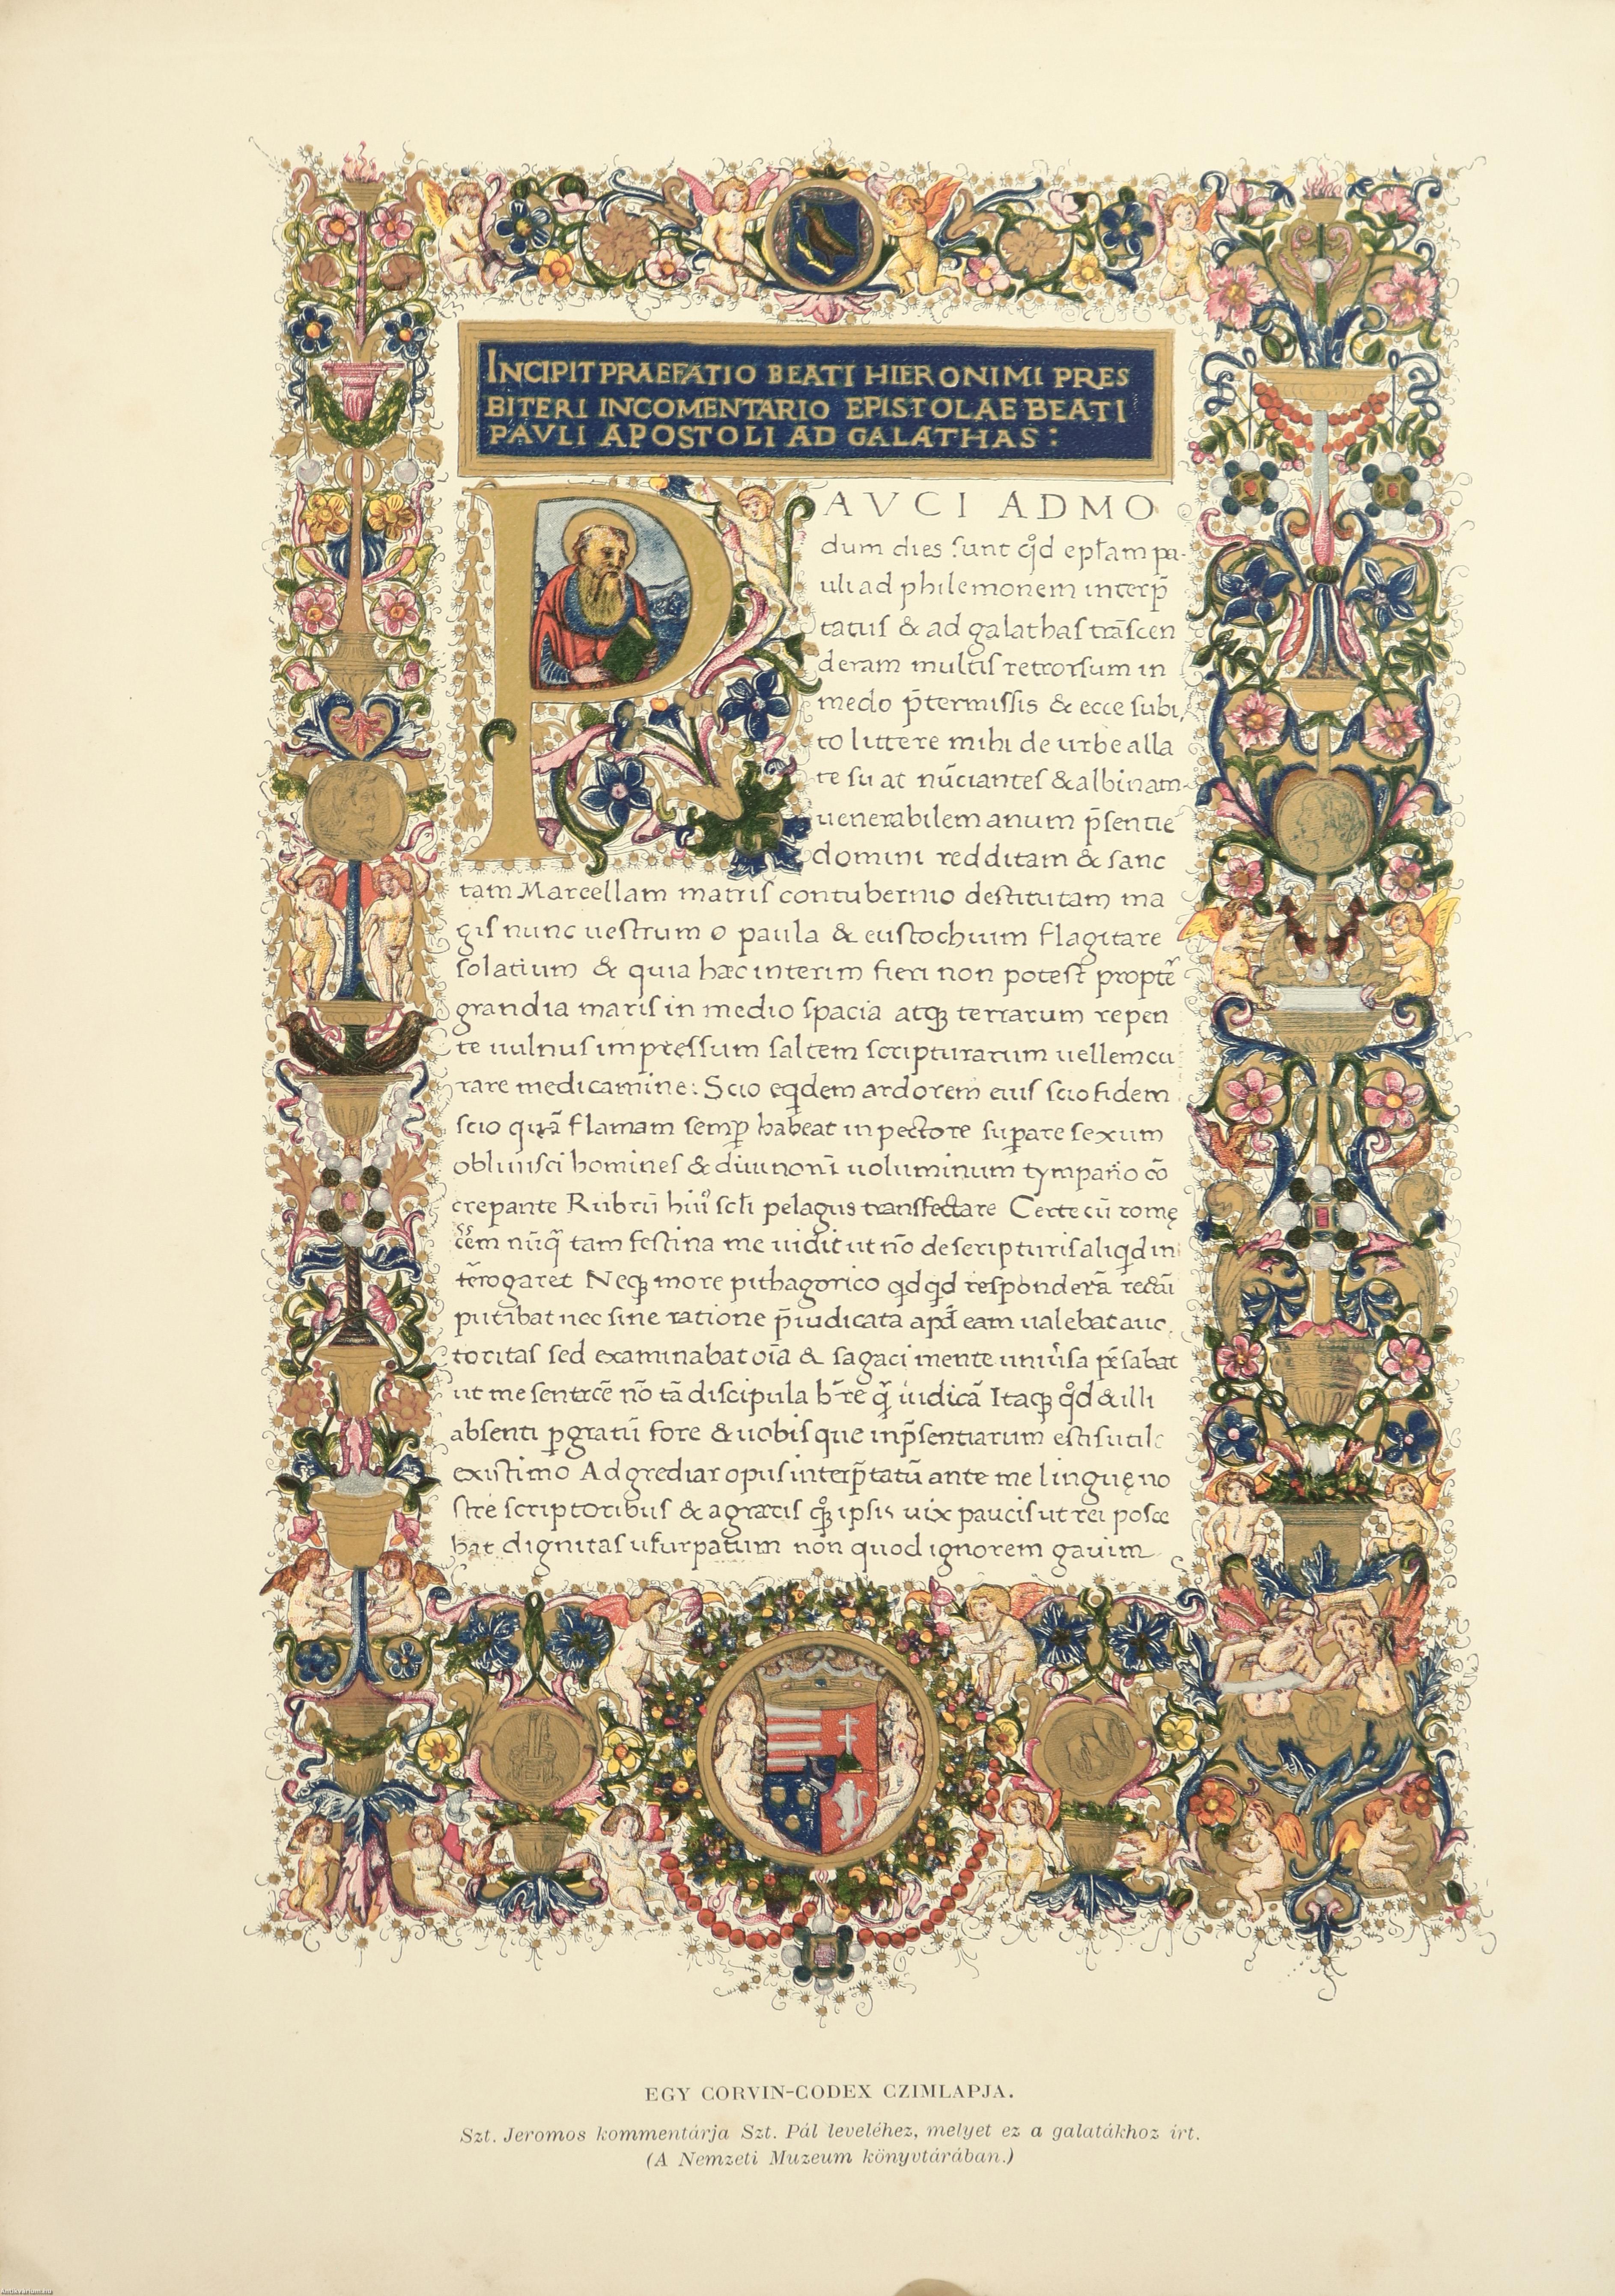 INCIPIT PRAEFATIO BEATI HIERONIMI PRES
BITERI INCOMENTARIO EPISTOLAE BEATI
PAVLI APOSTOLI AD GALATHAS:
PAVCI ADMO
dum dies sunt qd epłam pa-
uli ad philemonem interp̄
tatus & ad galathas trāscen
deram multis retrorsum in
medo p̄termissis & ecce subi,
to littere mihi de urbe alla
te su at nūciantes & albinam
uenerabilem anum p̄sentie
domini redditam & sanc
tam Marcellam matris contubernio destitutam ma
gis nunc uestrum o paula & eustochium flagitare
solatium & quia hæc interim fieri non potest propte͂
grandia maris in medio spacia atqꝫ terrarum repen
te uulnus impressum saltem scripturarum uellem cu
rare medicamine: Scio eqdem ardorem eius scio fidem
scio quā flamam semꝑ habeat in pectore suꝑare sexum
obliuisci homines & diuinoꝝ uoluminum tympano cō
crepante Rubrū hiuꝰ scłi pelagus transfectare Certe cū romę
eēm nūq̄ tam festina me uidit ut nō de scripturis aliqd in
tērogaret Neqꝫ more pithagorico qdqd responderā rectū
putabat nec sine ratione p̄iudicata apd eam ualebat auc,
toritas sed examinabat oīa & sagaci mente uniūsa pēsabat
ut me sentirē nō tā discipula h̄re q̄ iudicā Itaqꝫ qd & illi
absenti ꝑgratū fore & uobis que inp̄sentiarum estis utile
existimo Adgrediar opus interp̄tatū ante me linguę no
stre scriptoribus & a græcis qꝫ ipsis uix paucis ut rei posce
bat dignitas usurpatum non quod ignorem gauim
EGY CORVIN-CODEX CZIMLAPJA.
Szt. Jeromos kommentárja Szt. Pál leveléhez, melyet ez a galatákhoz írt.
(A Nemzeti Muzeum könyvtárában.)
Antikvarium.hu